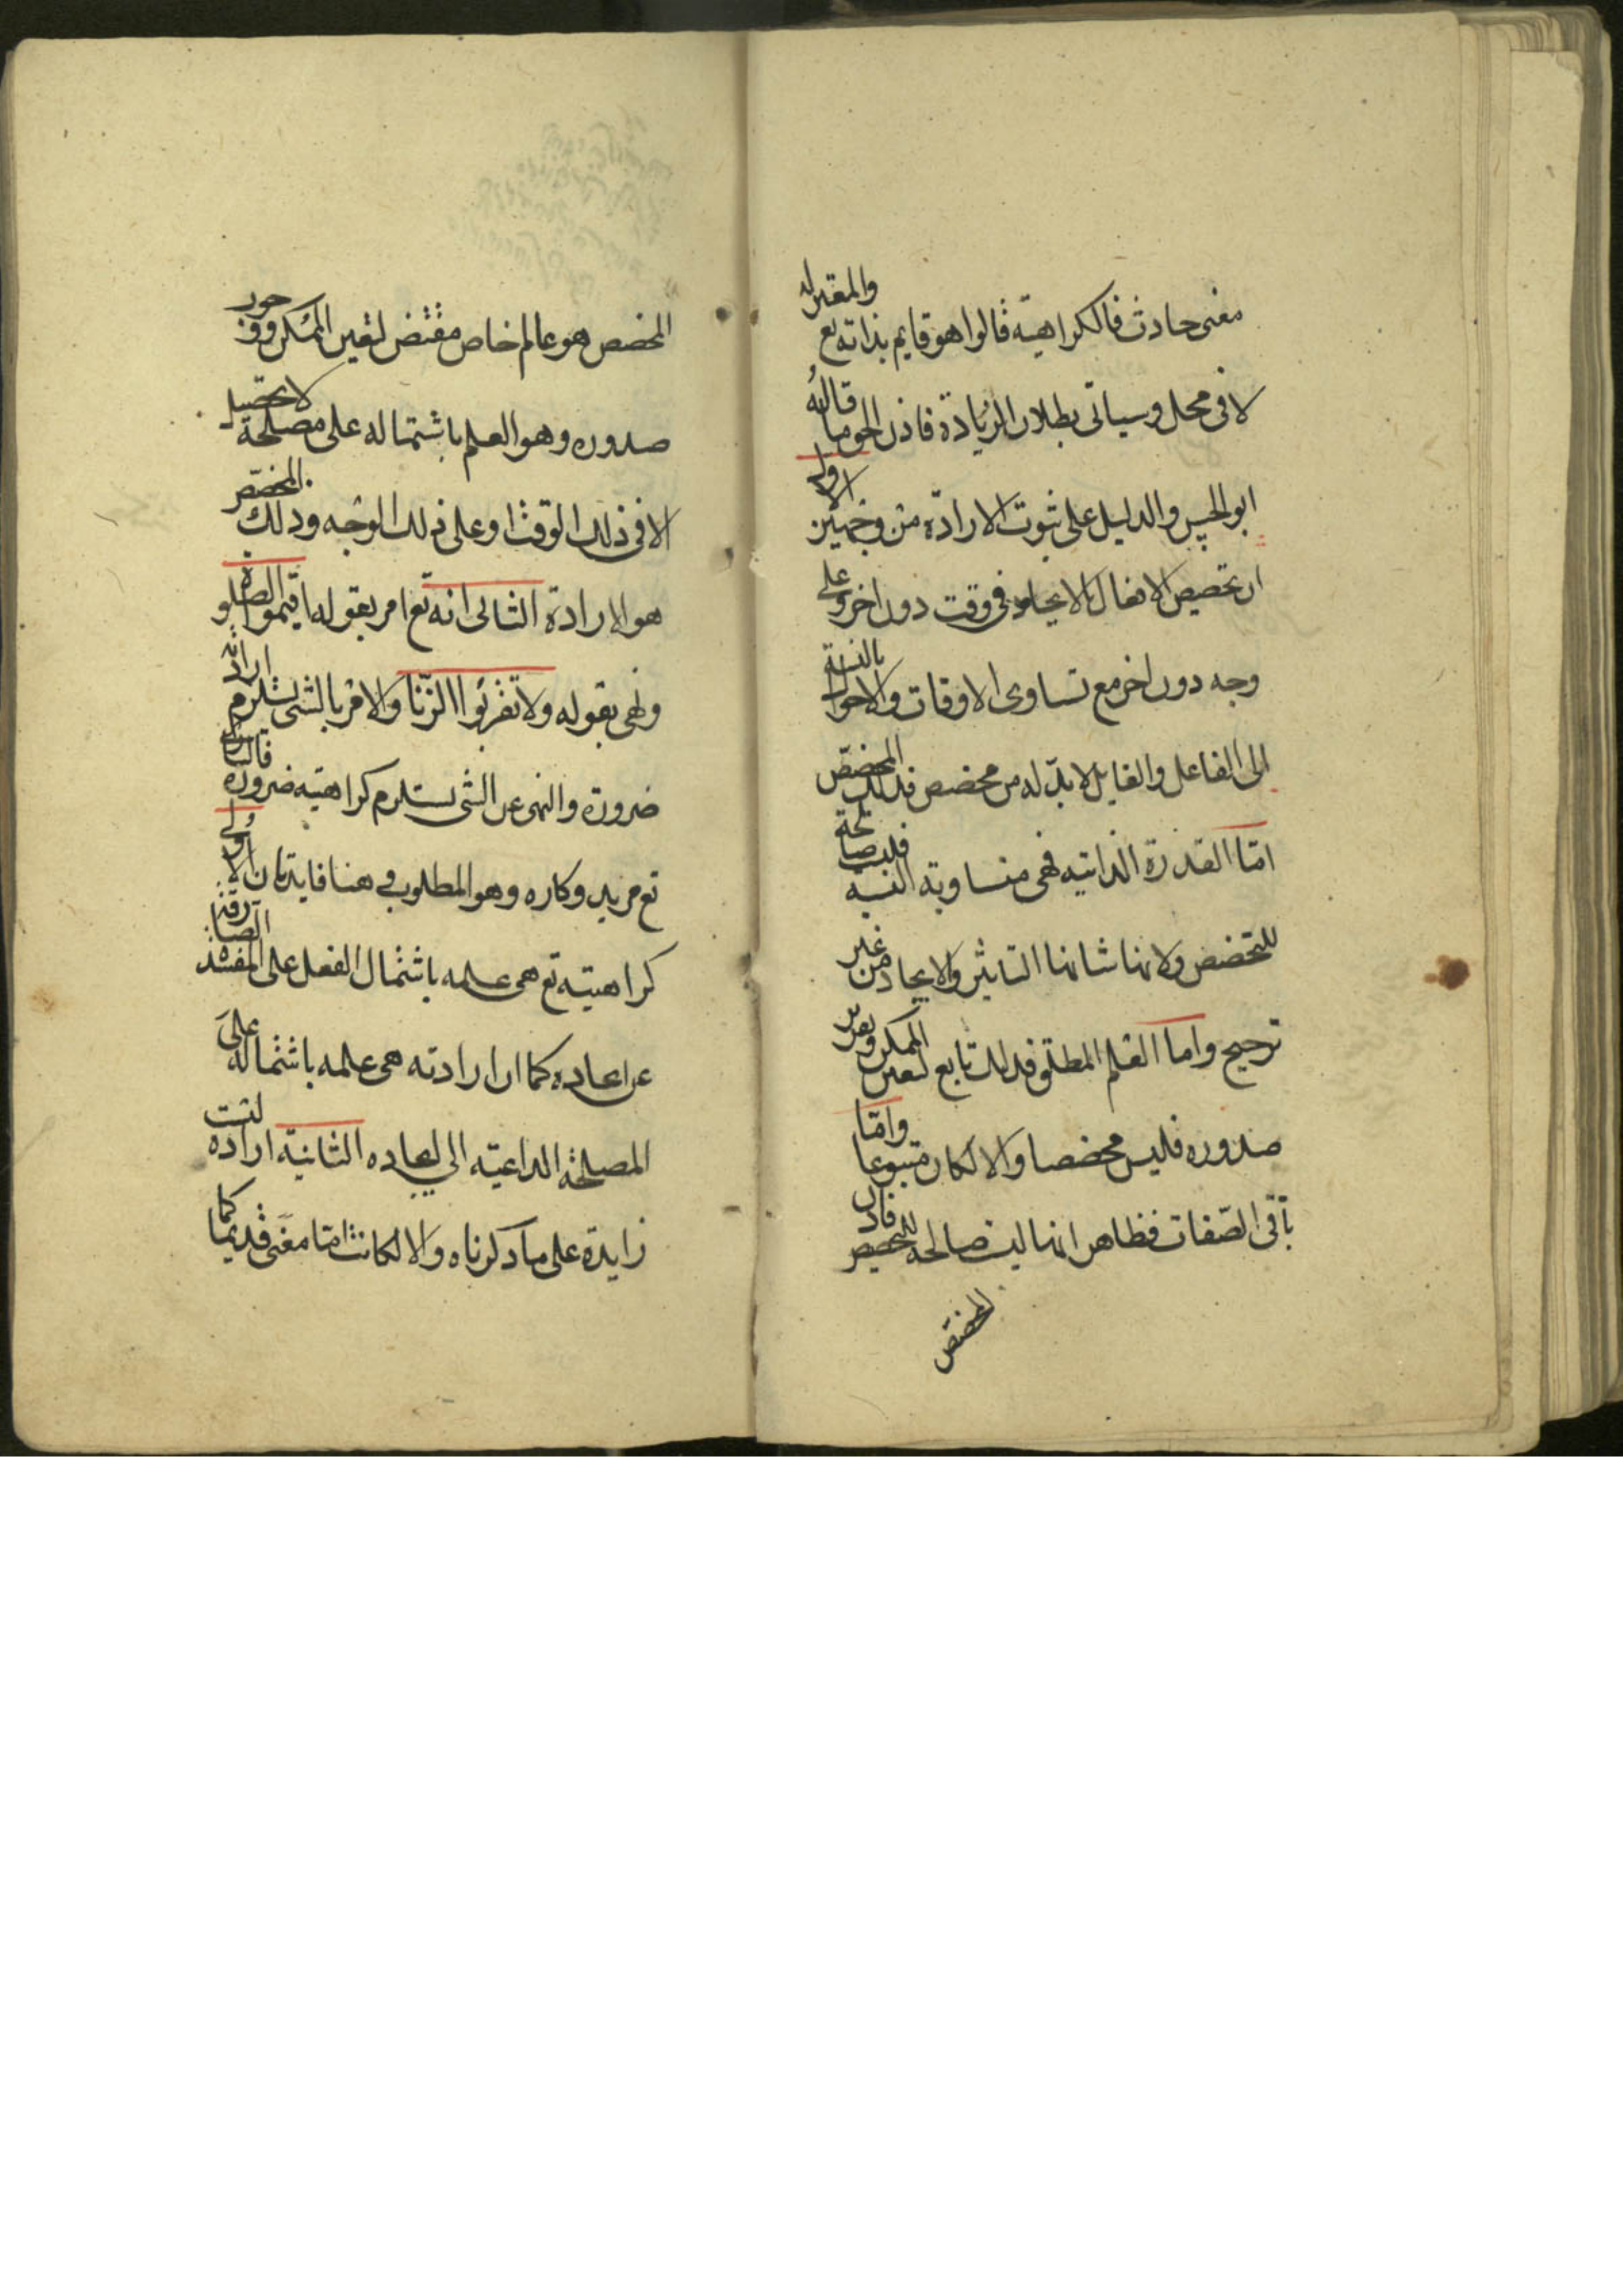 معنى حادث فالكراهية قالوا هو قايم بذاته تع والمعتزله
لا في محل وسياتى بطلان الزيادة فاذن الحق ما قاله
ابو الحسين والدليل على ثبوت الارادة من وجهين الاول
ان تخصيص الافعال بالايجاد فى وقت دون اخر وعلى
وجه دون اخر مع تساوى الاوقات والاحوال بالنسبة
الى الفاعل والقابل لا بد له من مخصص فذلك المخصص
امّا القدرة الذاتيه فهى متساوية النسبة فليست صالحة
للتخصص ولانها شانها التاثير والايجاد من غير
ترجيح واما العلم المطلق فذلك تابع لتعين الممكن وتقدير
صدوره فليس مخصصا والا لكان متبوعا وامّا
باقى الصّفات فظاهر انها ليست صالحه للتخصيص فاذن
المخصص
المخصص هو عالم خاص مقتض لتعين الممكن ووجود
صدوره وهو العلم باشتماله على مصلحة لا تحصيل
الا فى ذلك الوقت او على ذلك الوجه وذلك المخصص
هو الارادة الثانى انه تع امر بقوله اقيموا الصلوة
ونهى بقوله ولا تقربوا الزنا والامر بالشى يستلزم ارادته
ضرورة والنهى عن الشى يستلزم كراهيته ضرورة فالبارى
تع مريد وكاره وهو المطلوب وهنا فايدتان الاولى
كراهيته تع هى علمه باشتمال الفعل على المفسدة الصارفة
عن ايجاده كما ان ارادته هى علمه باشتماله على
المصلحة الداعيته الى ايجاده الثانية اراده ليست
زايدة على ما ذكرناه والا لكانت امّا معنى قديما كما